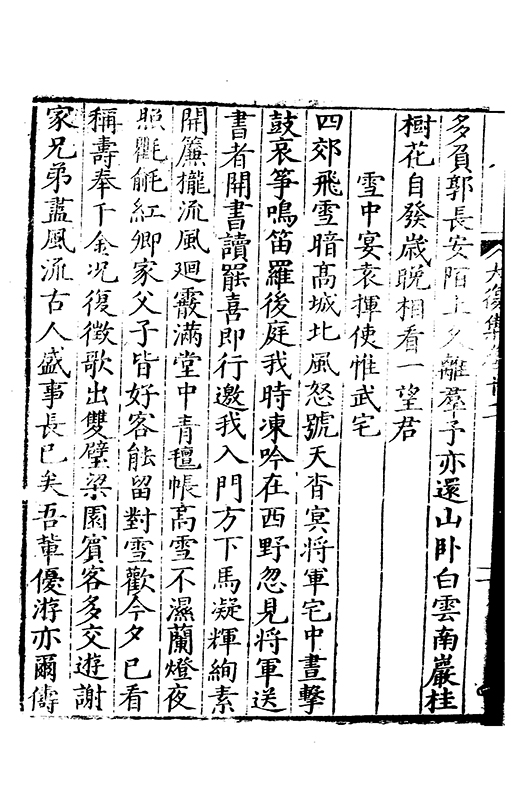 大復集卷十二
多負郭長安陌上久離羣予亦還山卧白雲南巖桂
樹花自發歲晚相看一望君
雪中宴袁揮使惟武宅
四郊飛雪暗高城北風怒號天杳冥將軍宅中晝擊
鼓哀箏鳴笛羅後庭我時凍吟在西野忽見將軍送
書者開書讀罷喜即行邀我入門方下馬凝輝絢素
開簾櫳流風迴霰滿堂中青氊帳高雪不濕蘭燈夜
照氍毹紅卿家父子皆好客能留對雪歡今夕已看
稱壽奉千金况復徵歌出雙璧梁園賓客多交遊謝
家兄弟盡風流古人盛事長已矣吾輩優游亦爾儔